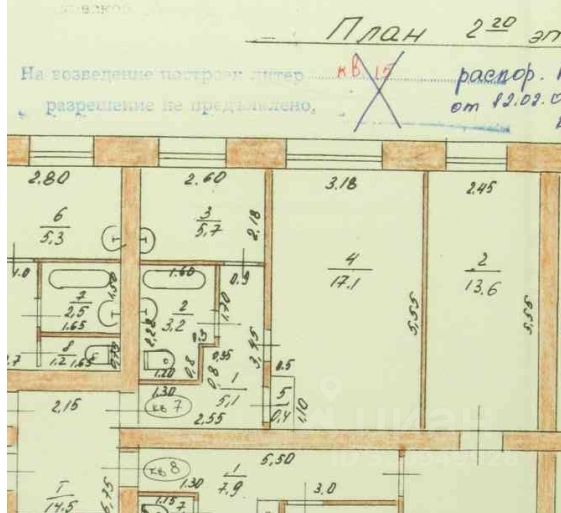 План 2го эт
На возведение построек литер кв 15 распор.
разрешение не предъявлено, от 12.02.
2.80 2.60 3.18 2.45
6 3 2.18
5,3 5,7 4 2
17.1 13.6
1.0 1.60 0.9
7 1.50 2 1.70
2.5 3.2 5,55 5.55
1.65 2.28
8 0.95 3,45
1.2 1.65 0.73 0.8 0.5
1.20 0.8 1
1.30 5,1 5
2,15 кв 7 0,4 1,10
2.55
кв 8 1 5,50
I 6,75 1.30 7,9 3,0
14.5 1.15
7